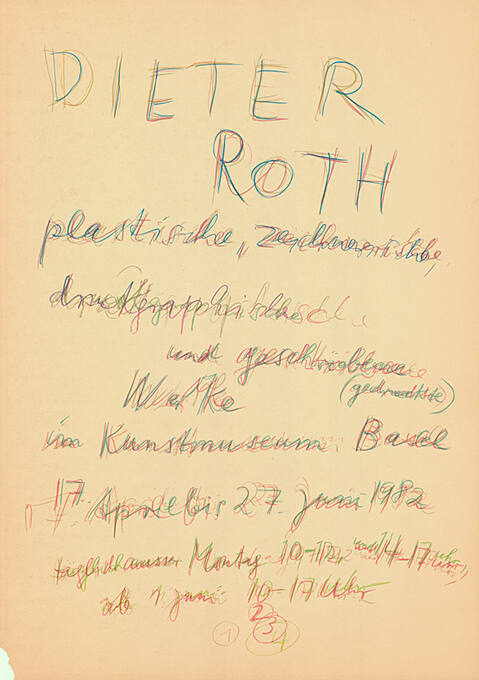 DIETER
ROTH
plastische, zeichnerische,
druckgraphische
und geschriebene
(gedruckte)
Werke
im Kunstmuseum Basel
17. April bis 27. Juni 1982
täglich ausser Montag 10–12, und 14–17 Uhr,
ab 1. Juni 10–17 Uhr
1 2 3